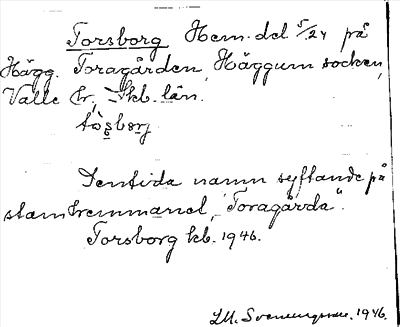 Torsborg Hem. del 5/24 på
Hägg. Toragården, Häggum socken,
Valle hd, Skb. län.
tɷ̀s̬bɷrj
Sentida namn syftande på
stamhemmanet, "Toragårda".
Torsborg kb. 1946.
1946.